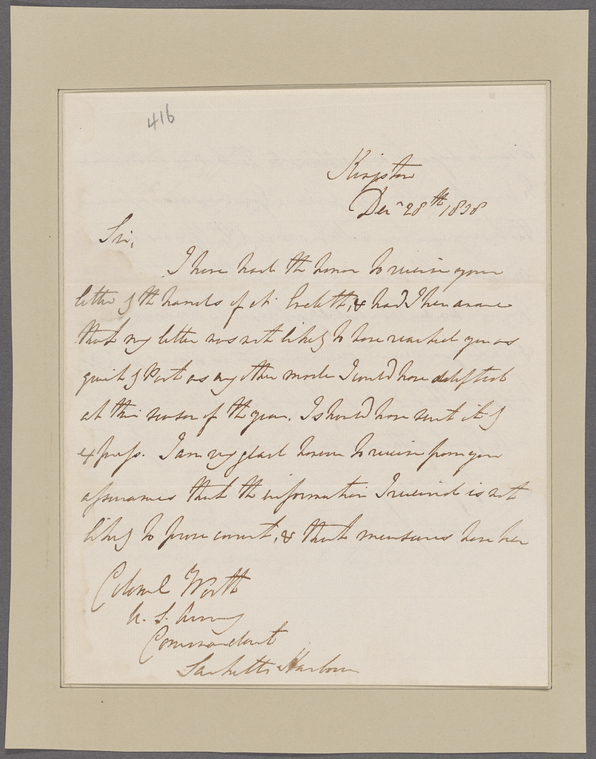 416
Kingston
Decr 28th 1838
Sir,
I have had the honor to receive your
letter by the hands of Mr & had I been aware
that my letter was not likely to have reached you as
quick by Post as any other mode I could have adopted
at this season of the year. I should have sent it by
express. I am very glad however to receive from you
assurances that the information I received is not
likely to prove correct, & that measures have been
Colonel Worth
U. S. Army
Commandant
Sacketts Harbour